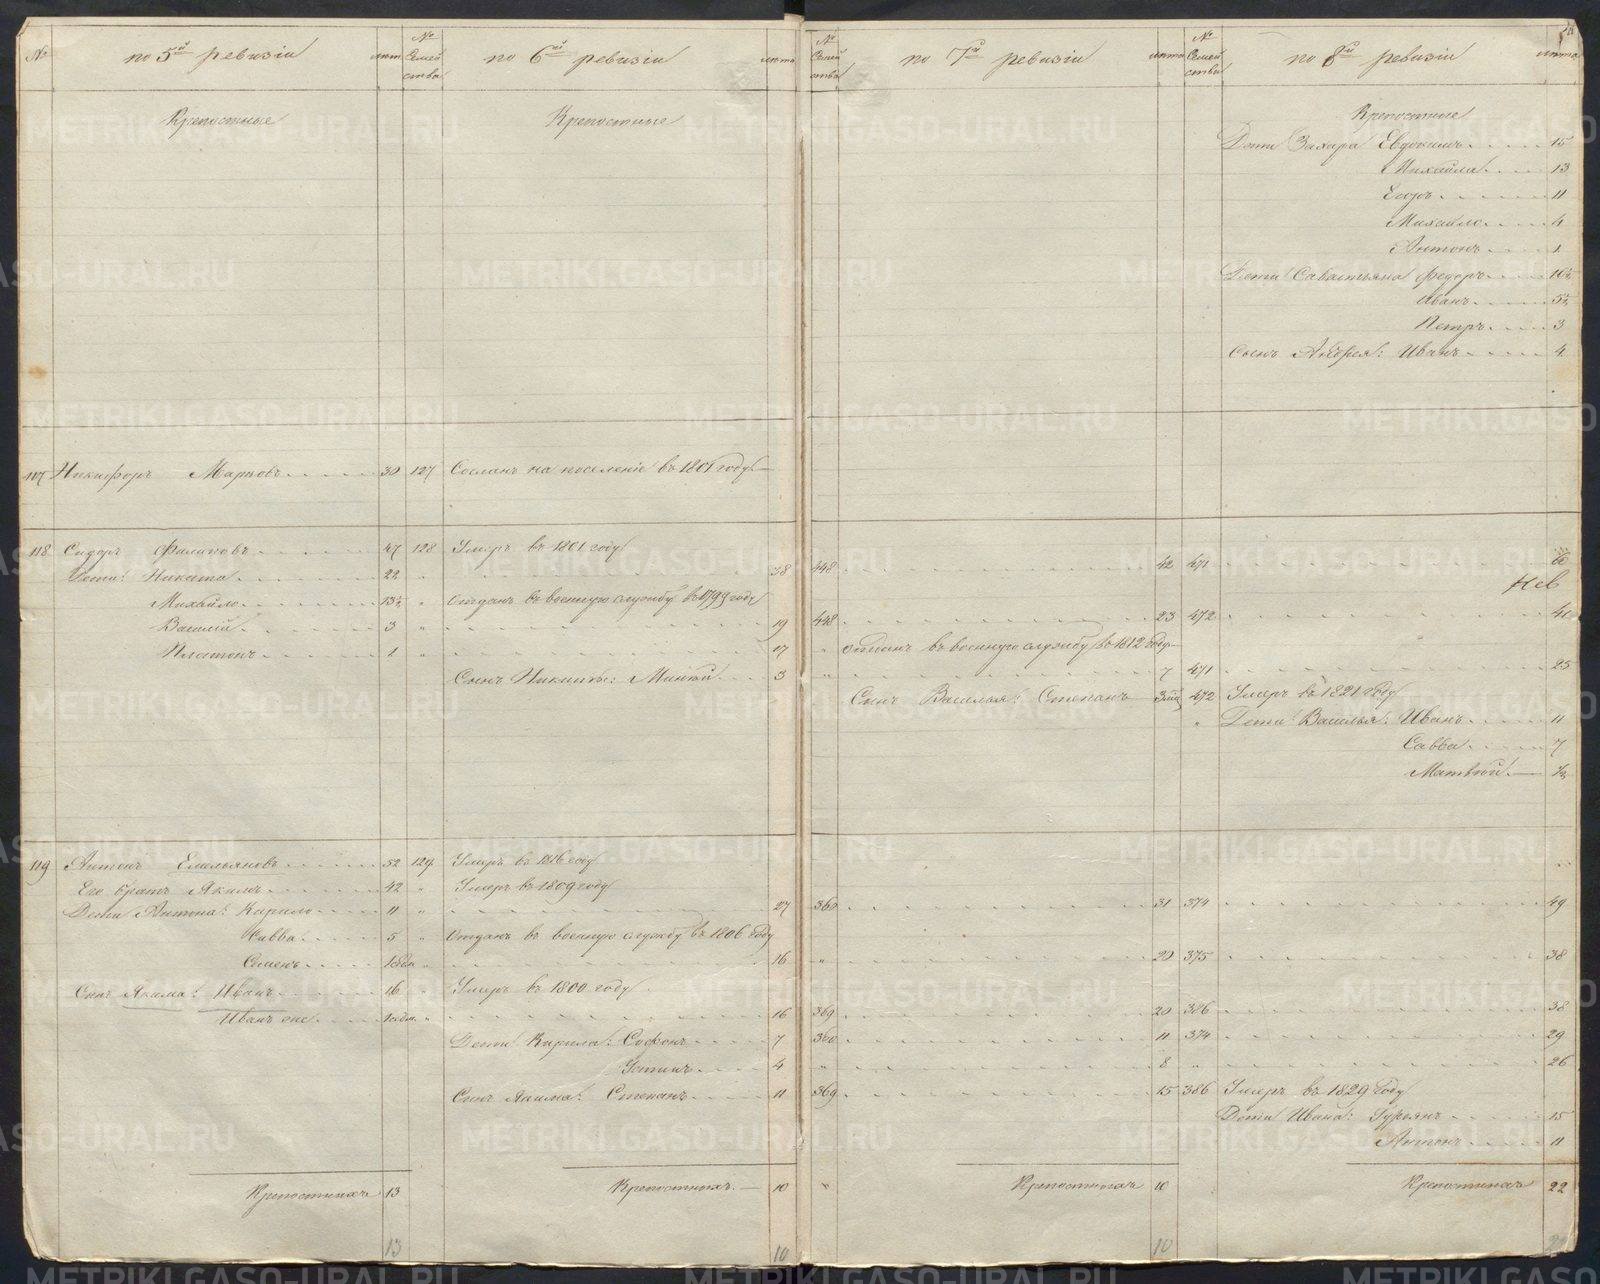 № по 5й ревизіи лѣта № Семейства по 6й ревизіи лѣта № Семейства по 7й ревизіи лѣта № Семейства по 8й ревизіи лѣта
Крепостные Крепостные Крепостные
Дети Захара Евдокимъ 15
Михайла 13
Егоръ 11
Михайло 4
Антонъ 1
Дети Савастьяна Федоръ 10½
Иванъ 5½
Петръ 3
Сынъ Андрея: Иванъ 4
Никифоръ Марковъ 30 127 Сосланъ на поселеніе въ 1801 году
118 Сидоръ Филиповъ 47 128 Умеръ въ 1801 году
Дети: Никита 22 " 38 448 42 471
Михайло 13½ " Отданъ въ военную службу въ 1799 году
Василій 3 " 19 448 23 472 40
Платонъ 1 " 17 " отданъ въ военную службу въ 1812 году
Сынъ Никиты: 3 " 7 471 25
Сынъ Василья: Степанъ 472 Умеръ въ 1821 году
" Дети Василья: Иванъ 11
Савва 7
Матвей ½
119 Антонъ Емельяновъ 52 129 Умеръ въ 1816 году
Его братъ Якимъ 42 " Умеръ въ 1809 году
Дети Антона: Кирило 11 " 27 360 31 374 49
Савва 5 " Отданъ въ военную службу въ 1806 году
Семенъ " 16 " 20 375 38
Сынъ Якима: Иванъ 16 " Умеръ въ 1800 году
Иванъ же " 16 369 20 386 38
Дети Кирила: Софонъ 7 360 11 374 29
Устинъ 4 " 8 " 26
Сынъ Якима: Степанъ 11 369 15 386 Умеръ въ 1829 году
Дети Ивана: Гурьянъ 15
Антонъ 11
Крепостныхъ 13 Крепостныхъ 10 " Крепостныхъ 10 Крепостныхъ 22
13 10 10 22
METRIKI.GASO-URAL.RU